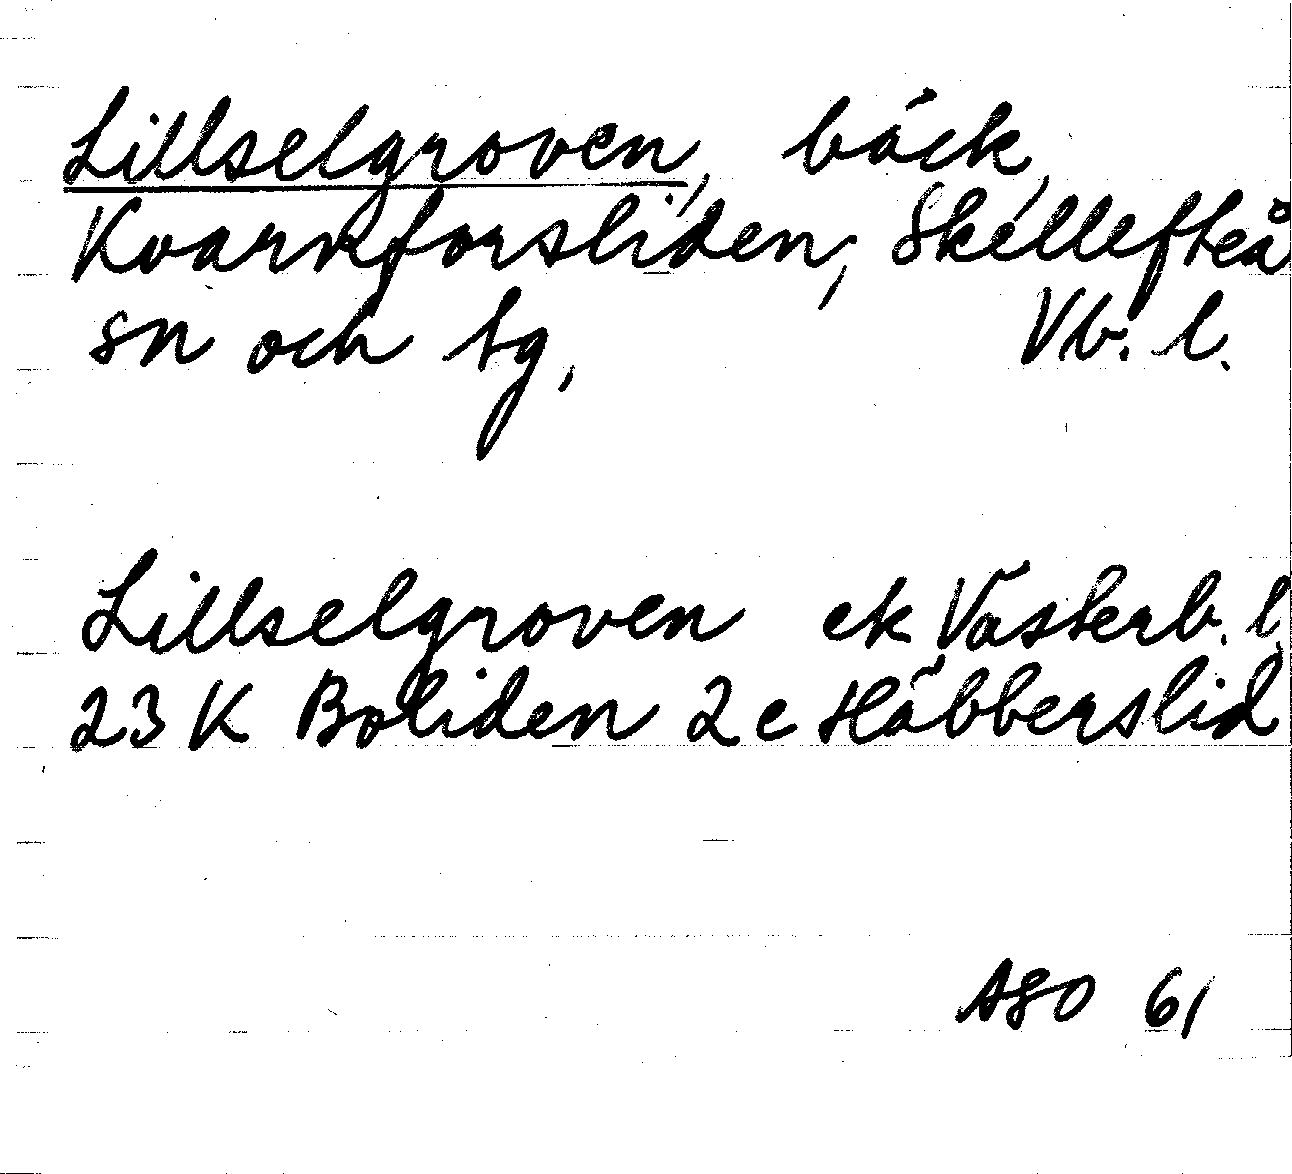 Lillselgroven, bäck,
Kvarnforsliden, Skellefteå
sn och tg, Vb. l.
Lillselgroven ek Västerb. l.
23 K Boliden 2 c Häbberslid
ASO 61